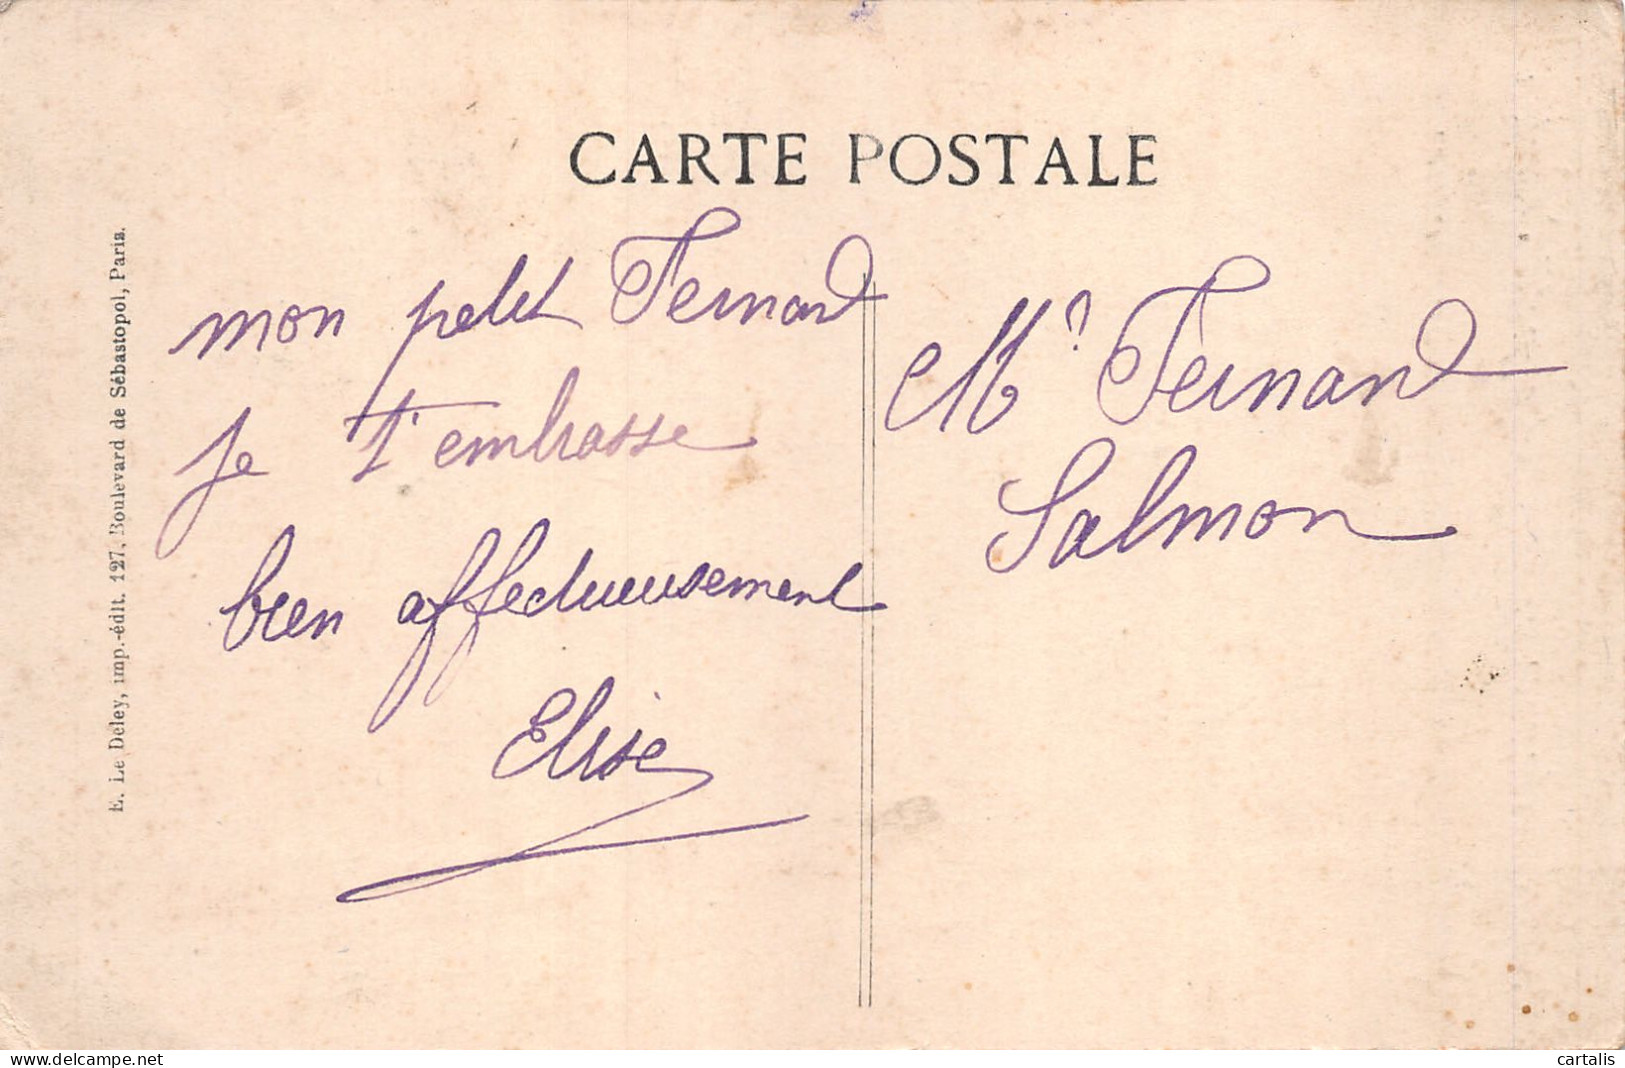 CARTE POSTALE
mon petit Fernand
je t'embrasse
bien affectueusement
Elise
Mr Fernand
Salmon
E. Le Deley, imp.-édit. 127, Boulevard de Sébastopol, Paris.
www.delcampe.net
cartalis